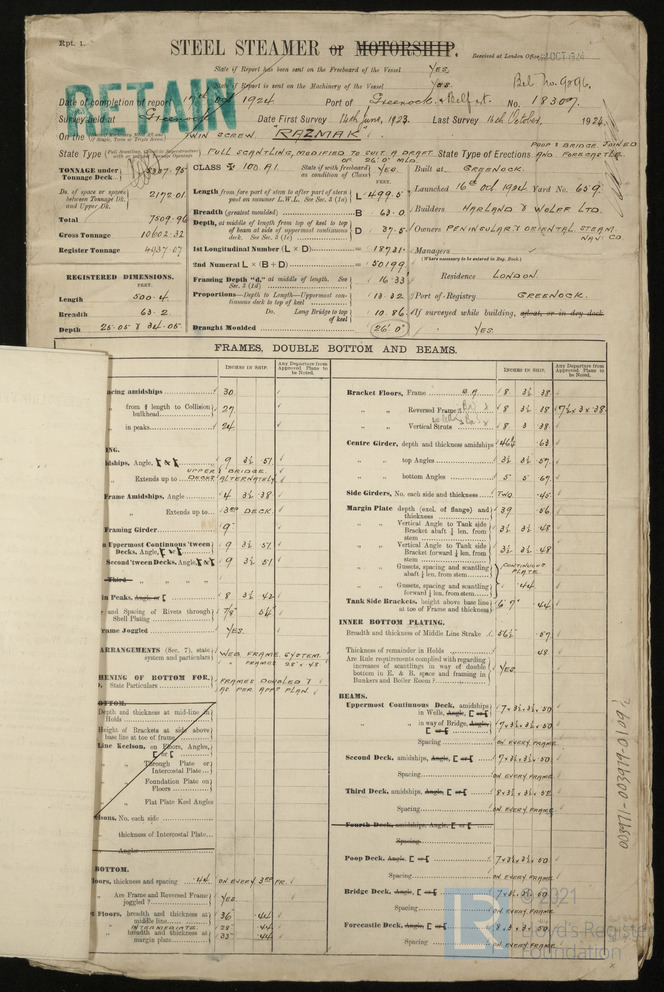 Rpt. 1.
STEEL STEAMER or MOTORSHIP.
Received at London Office
State if Report has been sent on the Freeboard of the Vessel YES.
State if Report is sent on the Machinery of the Vessel YES.
Bel No. 9896.
RETAIN
Date of completion of report 1924 Port of Greenock & Belfast No. 18307.
Survey held at Greenock Date First Survey 14th June, 1923. Last Survey 14th October, 1924
On the TWIN SCREW "RAZMAK"
State Type FULL SCANTLING, MODIFIED TO SUIT A DRAFT OF 26'.0" MLD. State Type of Erections POOP & BRIDGE JOINED AND FORECASTLE
TONNAGE under Tonnage Deck 5337.95
Do. of space or spaces between Tonnage Dk. and Upper Dk. 2172.01
Total 7509.96
Gross Tonnage 10602.32
Register Tonnage 4937.07
REGISTERED DIMENSIONS.
FEET.
Length 500.4
Breadth 63.2
Depth 25.05 & 34.05
CLASS 100.A1. State if with freeboard as condition of Class YES.
Length from fore part of stem to after part of stern post on summer L.W.L. See Sec. 3 (1a) L 499.5
Breadth (greatest moulded) B 63.0
Depth, at middle of length from top of keel to top of beam at side of uppermost continuous deck. See Sec. 3 (1c) D 37.5
1st Longitudinal Number (L × D) = 18731
2nd Numeral L × (B + D) = 50199
Framing Depth "d," at middle of length. See Sec. 3 (1d) 16.33
Proportions—Depth to Length—Uppermost continuous deck to top of keel 13.32
Do. Long Bridge to top of keel 10.86
Draught Moulded 26'.0"
Built at GREENOCK.
Launched 16th Oct 1924 Yard No. 659
Builders HARLAND & WOLFF LTD.
Owners PENINSULAR & ORIENTAL STEAM NAV. CO.
Managers
(Where necessary to be entered in Reg. Book.)
Residence LONDON.
Port of Registry GREENOCK.
If surveyed while building, afloat, or in dry dock
YES.
FRAMES, DOUBLE BOTTOM AND BEAMS.
INCHES IN SHIP.
Any Departure from Approved Plans to be Noted.
INCHES IN SHIP.
Any Departure from Approved Plans to be Noted.
cing amidships 30
from ⅕ length to Collision bulkhead 27
in peaks 24
ING.
idships, Angle, 9 3½ .51
Extends up to UPPER & BRIDGE DECKS ALTERNATELY
Frame Amidships, Angle 4 3½ .38
Extends up to 3RD DECK.
Framing Girder 9"
n Uppermost Continuous 'tween Decks, Angle, 9 3½ .51
Second 'tween Decks, Angle, 9 3½ .51
Third
n Peaks, Angle or [ 8 3½ .42
and Spacing of Rivets through Shell Plating 7/8"
rame Joggled YES.
ARRANGEMENTS (Sec. 7), state system and particulars WEB FRAME SYSTEM.
HENING OF BOTTOM FOR, State Particulars FRAMES DOUBLED & AS PER APPD PLAN.
BOTTOM.
Depth and thickness at mid-line in Holds
Height of Brackets at side above base line at toe of frame
Line Keelson, on Floors, Angles, [ or [
Through Plate or Intercostal Plate
Foundation Plate on Floors
Flat Plate Keel Angles
lsons, No. each side
thickness of Intercostal Plate
Angles
BOTTOM.
loors, thickness and spacing .44 ON EVERY 3RD FR.
Are Frame and Reversed Frame joggled? YES
t Floors, breadth and thickness at middle line 36 .44
INTERMEDIATE 28" .44
breadth and thickness at margin plate 33" .44
Bracket Floors, Frame B.A 8 3½ .38
Reversed Frame 8 3½ .38 7½ x 3 x .38
Vertical Struts 8 3 .38
Centre Girder, depth and thickness amidships 46½ .63
top Angles 3½ 3½ .57
bottom Angles 5 5 .67
Side Girders, No. each side and thickness TWO .45
Margin Plate depth (excl. of flange) and thickness 39 .56
Vertical Angle to Tank side Bracket abaft ¼ len. from stem 3½ 3½ .48
Vertical Angle to Tank side Bracket forward ¼ len. from stem 3½ 3½ .48
Gussets, spacing and scantling abaft ¼ len. from stem CONTINUOUS PLATE
Gussets, spacing and scantling forward ¼ len. from stem .44
Tank Side Brackets, height above base line at toe of Frame and thickness 6' 7" .44
INNER BOTTOM PLATING.
Breadth and thickness of Middle Line Strake 56½ .57
Thickness of remainder in Holds .48
Are Rule requirements complied with regarding increases of scantlings in way of double bottom in E. & B. space and framing in Bunkers and Boiler Room? YES
BEAMS.
Uppermost Continuous Deck, amidships in Wells, Angle, [ or [ 7 x 3½ x 3½ .50
in way of Bridge, Angle, [ or [ 7 x 3½ x 3½ .50
Spacing ON EVERY FRAME
Second Deck, amidships, Angle, [ or [ 7 x 3½ x 3½ .50
Spacing ON EVERY FRAME
Third Deck, amidships, Angle, [ or [ 8 x 3½ x 3½ .52
Spacing ON EVERY FRAME
Fourth Deck, amidships, Angle, [ or [
Spacing
Poop Deck, Angle, [ or [ 7 x 3½ x 3½ .50
Spacing ON EVERY FRAME
Bridge Deck, Angle, [ or [ 7 x 3½ x 3½ .50
Spacing ON EVERY FRAME
Forecastle Deck, Angle, [ or [
Spacing ON EVERY FRAME
© 2021
Lloyd's Register
Foundation
LR